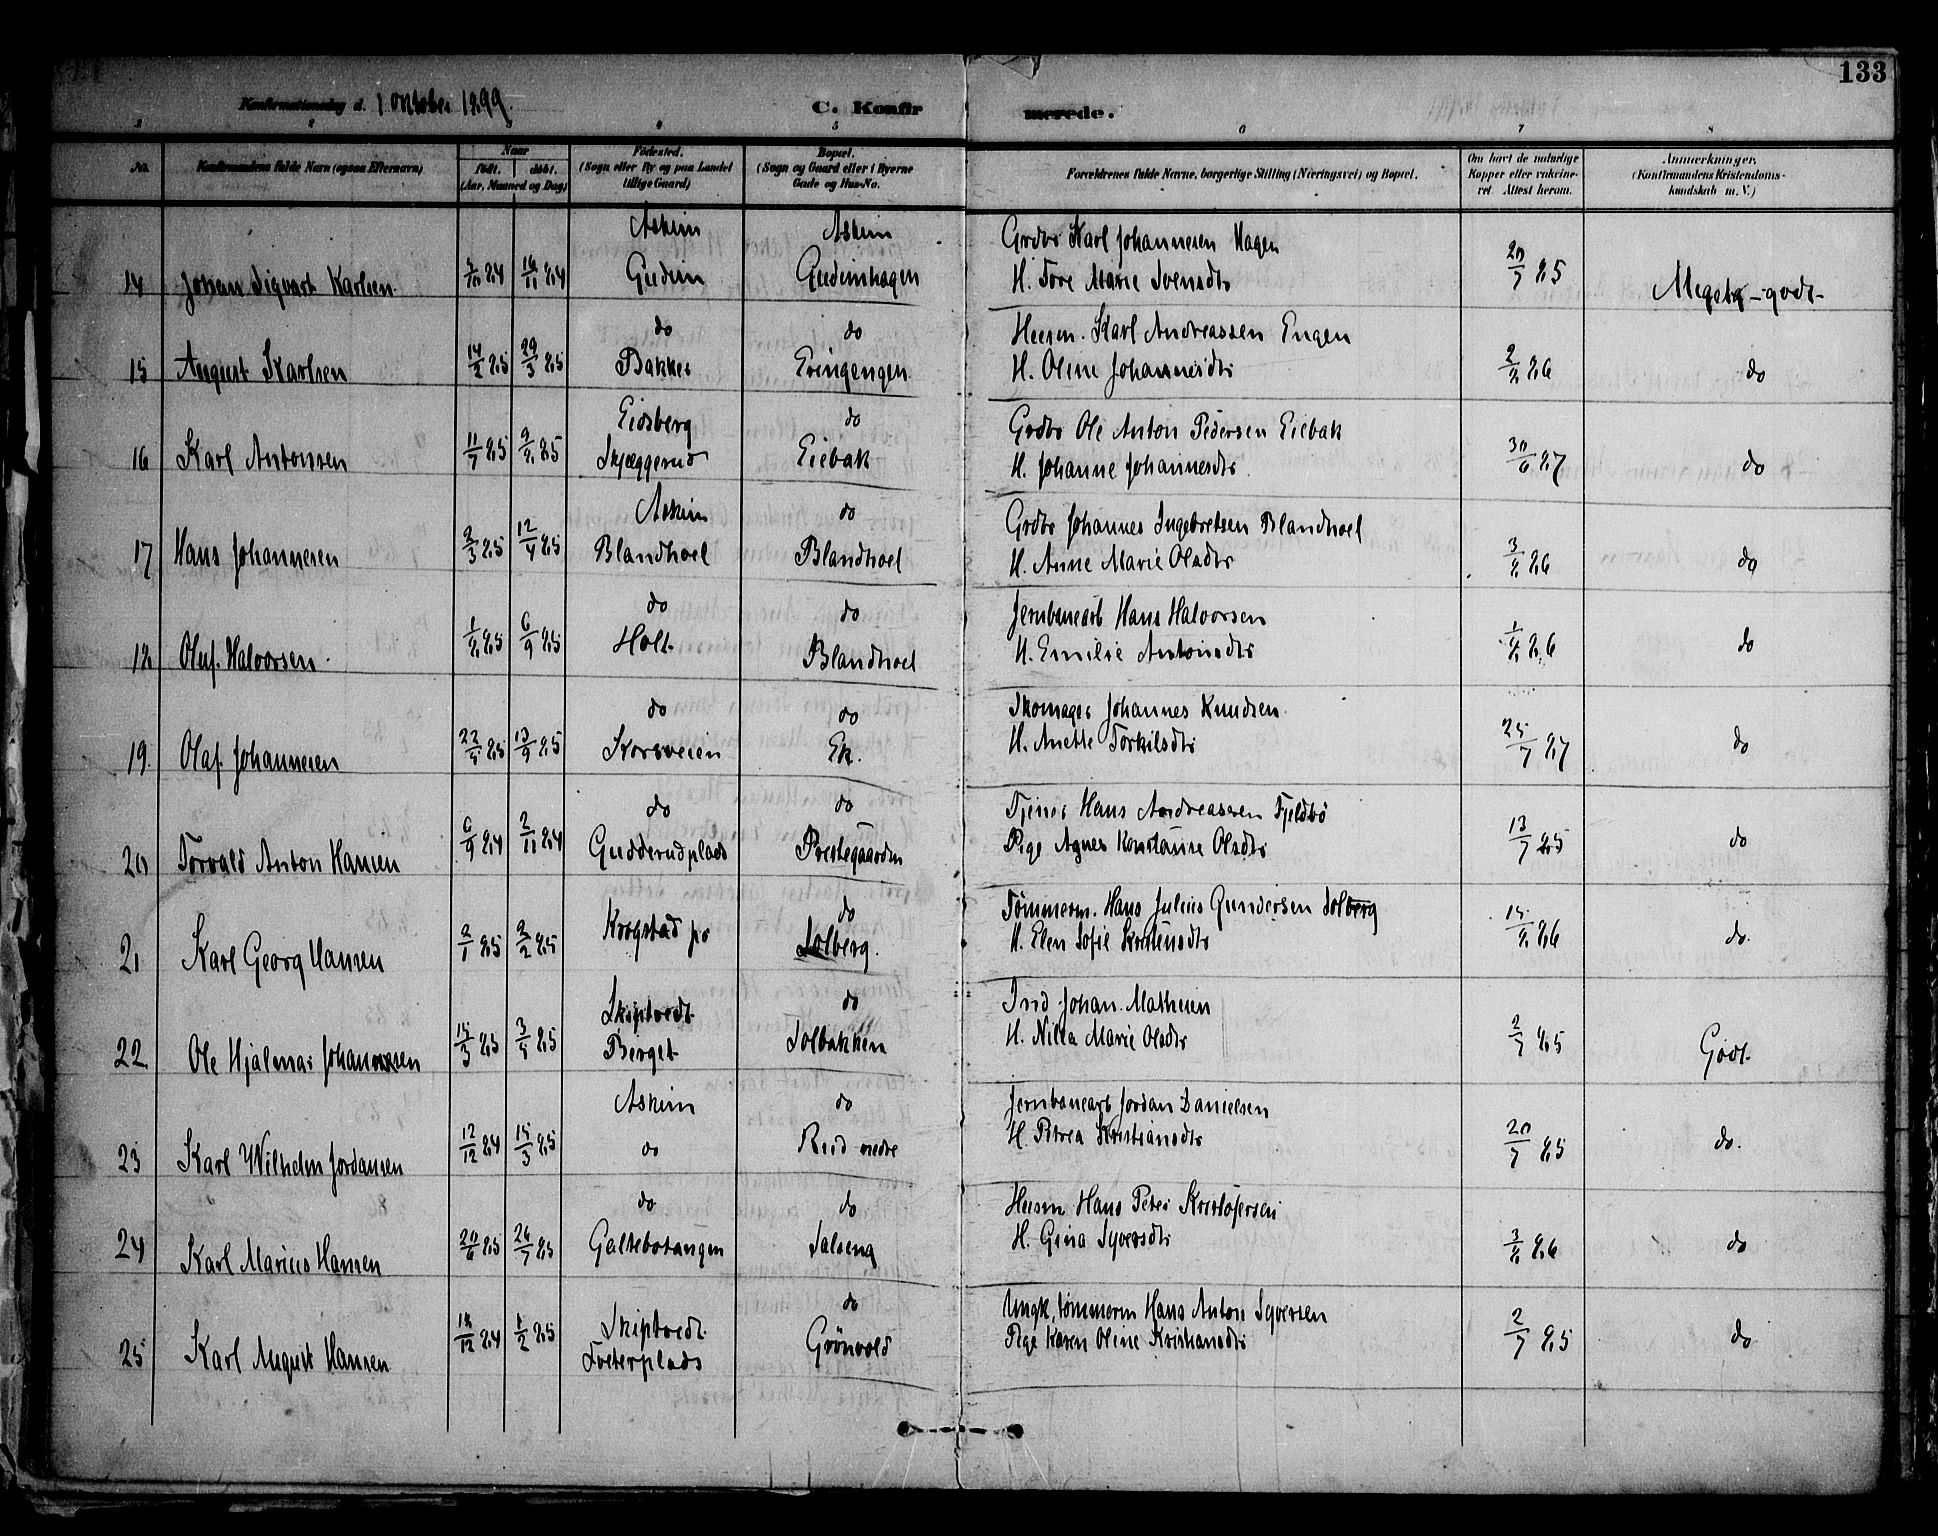 133
Konfirmationsdag d. 1 Oktober 1899.
C. Konfirmerede.
1 2 3 4 5 6 7 8
No. | Konfirmandens fulde Navn (ogsaa Efternavn) | Naar født. døbt. (Aar, Maaned og Dag) | Fødested. (Sogn eller By og paa Landet tillige Gaard) | Bopæl. (Sogn og Gaard eller i Byerne Gade og Hus-No. | Forældrenes fulde Navne, borgerlige Stilling (Næringsvei) og Bopæl. | Om havt de naturlige Kopper eller vakcineret. Attest herom. | Anmærkninger. (Konfirmandens Kristendomskundskab m. V.)
Askim | Askim | Grdbr Karl Johannesen Hagen
14 | Johan Sigvart Karlsen | 84 | 16/11 84 | Gudim | Gudimhagen | H. Tore Marie Svensdtr | 20/7 85 | Meget godt
do | do | Husm. Karl Andreassen Engen
15 | August Karlsen | 14/2 85 | 29/3 85 | Bakker | Evingengen | H. Oline Johannesdtr | 2/8 86 | do
Eidsberg | do | Grdbr Ole Anton Pedersen Eiebak
16 | Karl Antonsen | 11/7 85 | 9/8 85 | Skjæggerud | Eiebak | H. Johanne Johannesdtr. | 30/6 87 | do
Askim | do | Grdbr Johannes Ingebretsen Blandhoel
17 | Hans Johannesen | 2/3 85 | 12/4 85 | Blandhoel | Blandhoel | H. Anne Marie Olsdtr | 3/8 86 | do
do | do | Jernbanearb Hans Halvorsen
18 | Oluf Halvorsen | 1/8 85 | 6/9 85 | Holt | Blandhoel | H. Emilie Antonsdtr | 1/8 86 | do
do | do | Skomager Johannes Knudsen
19 | Olaf Johannesen | 85 | 13/9 85 | Korsveien | Ek. | H. Anette Torkilsdtr | 25/7 87 | do
do | do | Tjener Hans Andreassen Fjeldbö
20 | Torvald Anton Hansen | 6/9 84 | 2/11 84 | Gudderudplads | Prestegaarden | Pige Agnes Konstanse Olsdtr | 13/7 85 | do
do | Tømmerm. Hans Julius Gundersen Solberg
21 | Karl Georg Hansen | 2/1 85 | 2/2 85 | Krogstad pr | Solberg. | H. Elen Sofie Kristensdtr | 15/8 86 | do.
Skiptvedt | do | Ind Johan Mathisen
22 | Ole Hjalmar Johannesen | 15/3 85 | 3/5 85 | Berget | Solbakken | H. Nilla Marie Olsdtr | 2/7 85 | Godt.
Askim | do | Jernbanearb Jordan Danielsen
23 | Karl Wilhelm Jordansen | 12/12 84 | 15/3 85 | do | Rud nedre | H. Petrea Kristiansdtr | 20/7 85 | do.
do | do | Husm Hans Peter Kristofersen
24 | Karl Marius Hansen | 20/6 85 | 26/7 85 | Galtebotangen | Salseng | H. Gina Syversdtr | 3/8 86 | do
do | Ungk. tømmerm Hans Anton Syversen
25 | Karl August Hansen | 18/12 84 | 1/2 85 | Skiptvedt Tveterplads | Grönvold | Pige Karen Oline Kristiansdtr | 2/7 85 | do